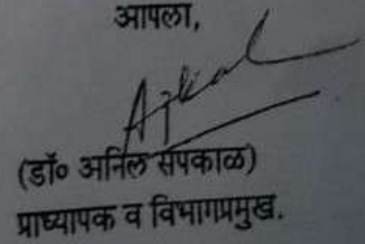 आपला,
(डॉ० अनिल सपकाळ)
प्राध्यापक व विभागप्रमुख.